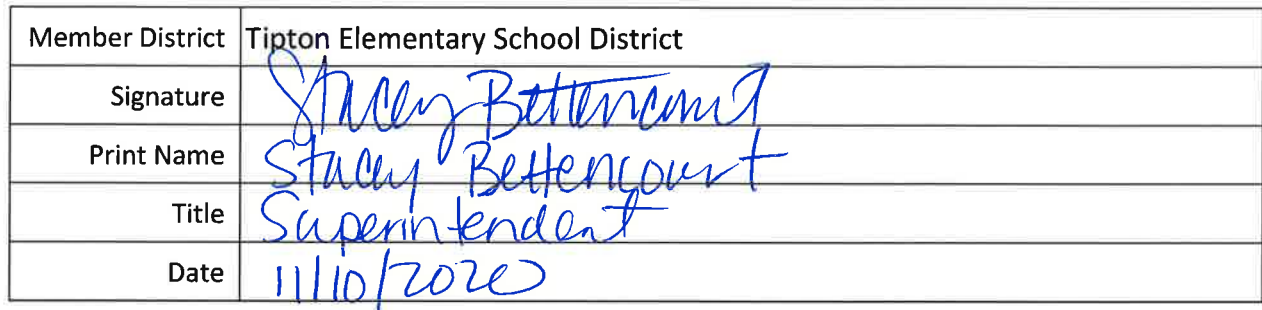 Member District Tipton Elementary School District
Signature Stacey Bettencourt
Print Name Stacey Bettencourt
Title Superintendent
Date 11/10/2020